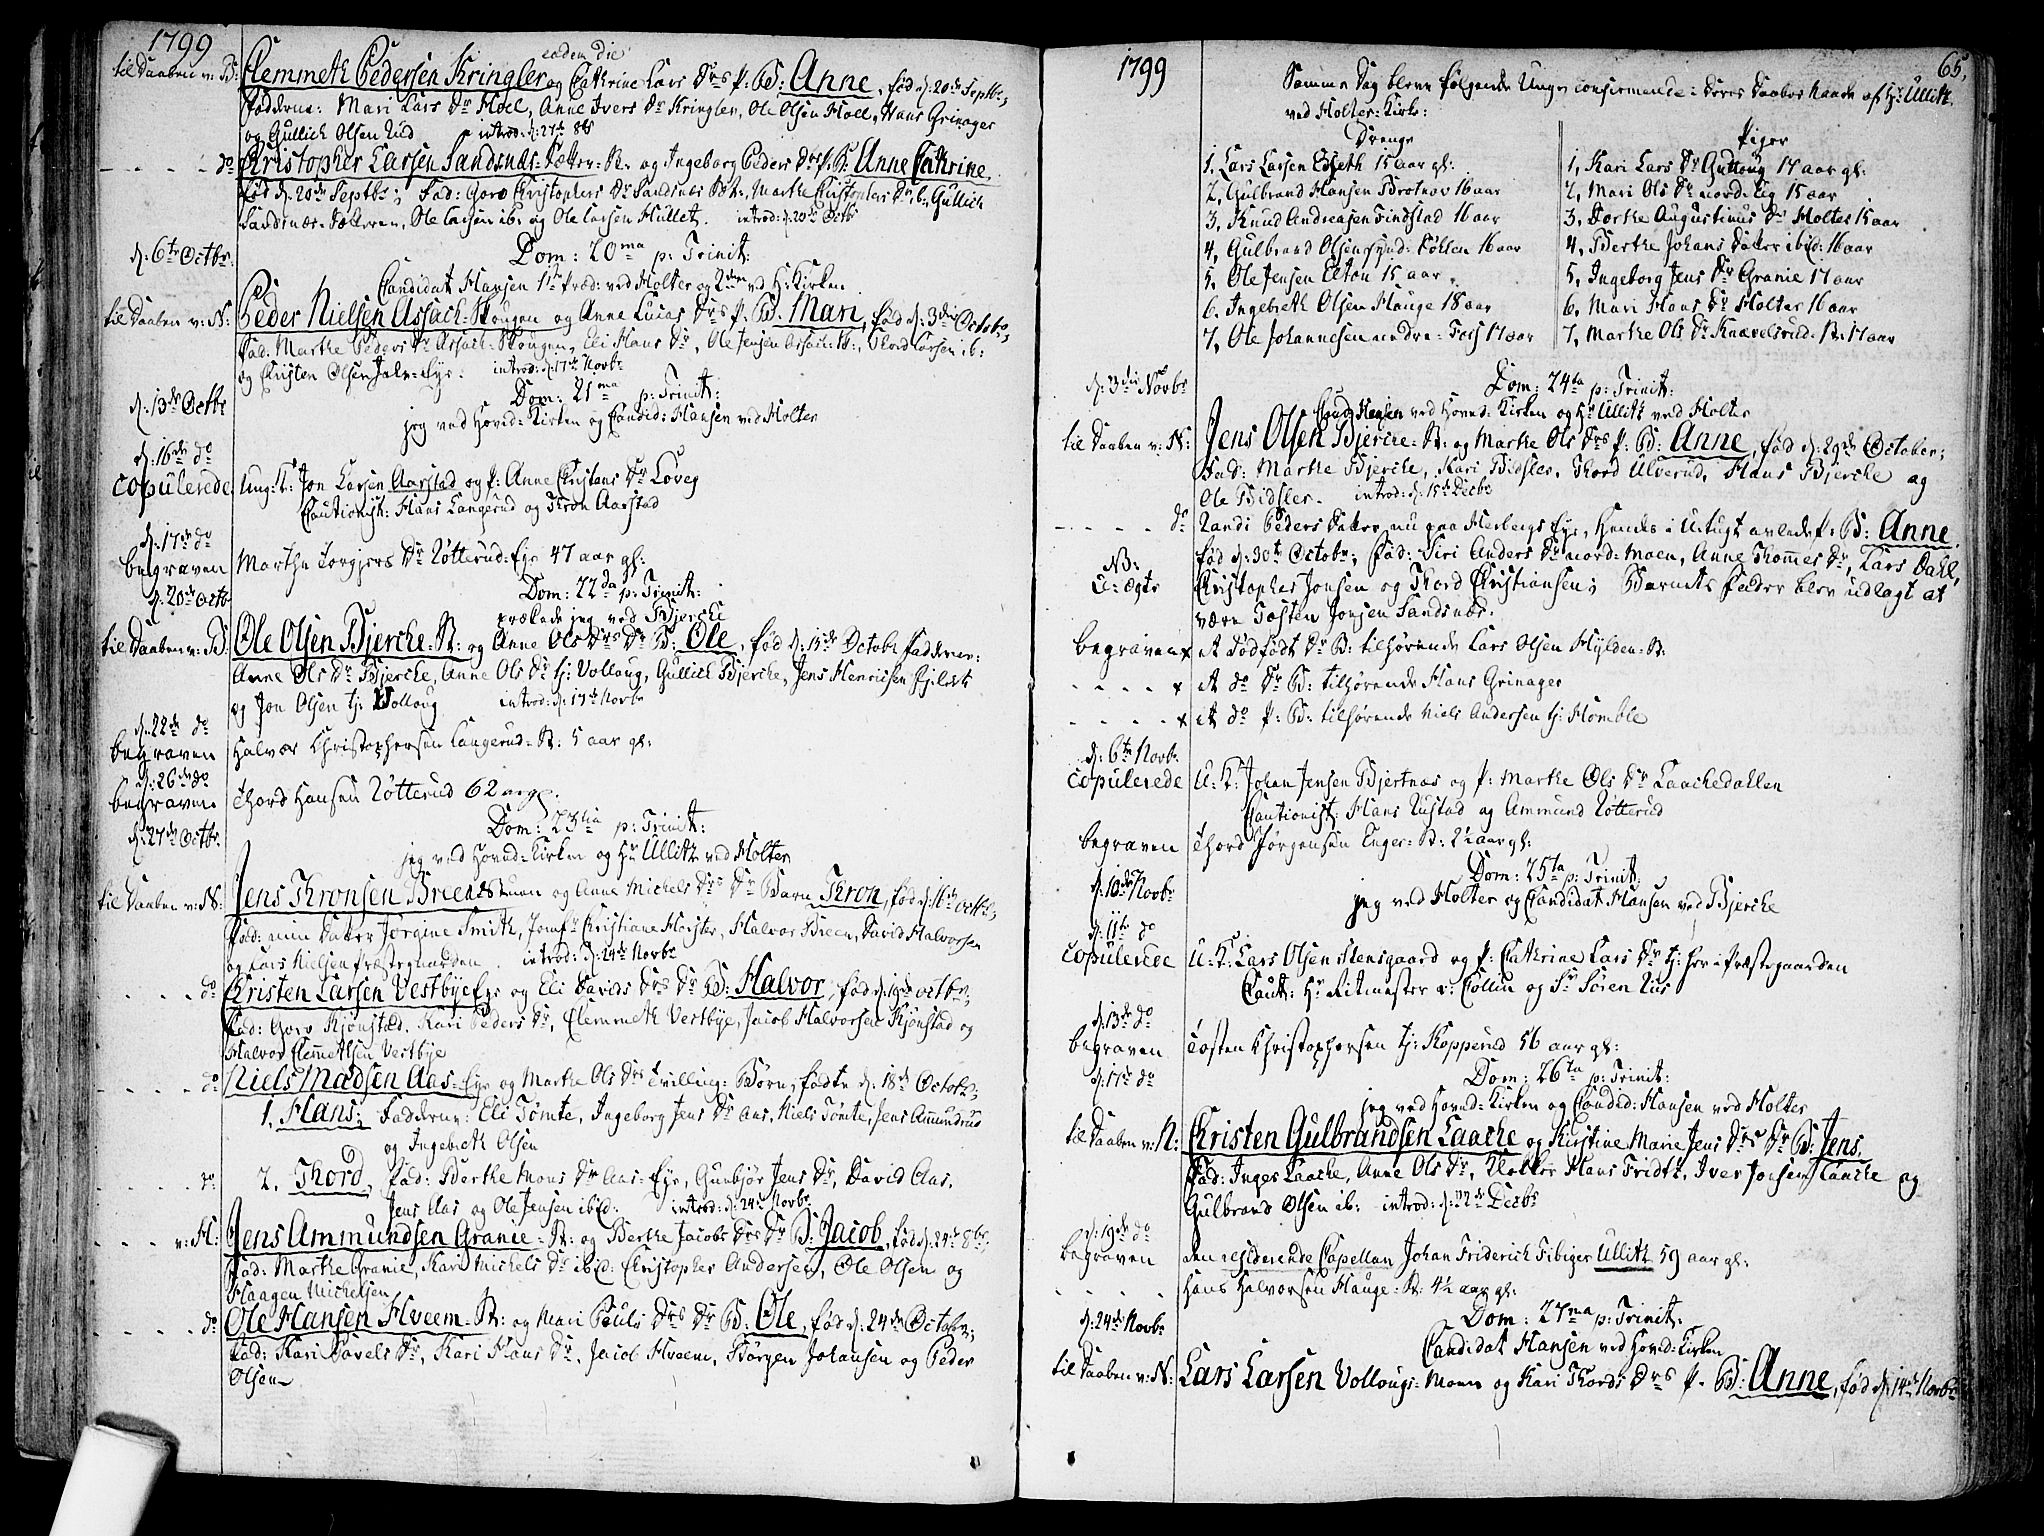 1799
eadem die
til Daaben v: B: Clemmeth Pedersen Kringler og Cathrine Lars Drs p. B: Anne, fød d. 20de Septbr;
Fadderne: Mari Lars Dr Moel, Anne Ivers Dr Kringler, Ole Olsen Moel, Hans Grinager
og Gullich Olsen Rud introd: d. 27de 8br
do Kristopher Larsen Sandsnæs-Sæter-St. og Ingeborg Peders Drs p. B: Anne Cathrine.
fød d. 20de Septbr; Fad: Goro Christophers Dr Sandsnæs, Marthe Christophers Dr ib., Gullich
Sandsnæs-Sæteren, Ole Larsen ib: og Ole Larsen Hullet. introd: d. 20de Octbr
d: 6te Octbr. Dom: 20ma p: Trinit:
Candidat Hansen 1ste Præd: ved Holter og 2den ved H: Kirken
til Daaben v: N: Peder Nielsen Assach-Skougen og Anne Lucas Drs p. B. Mari, fød d: 3die Octobr;
Fad: Marthe Peders Dr Assach-Skougen, Eli Hans Dr, Ole Jensen Assach-St:, Thord Larsen ib:
og Christen Olsen Eje. introd: d. 17de Novbr
d: 13de Octbr Dom: 21ma p: Trinit:
jeg ved Hoved-Kirken og Candid: Hansen ved Holter
d: 16de do
copulerede Ung: K: Jon Larsen Aarstad og p: Anne Christens Dr Løveg
Cautionist: Hans Langerud og Thron Aarstad
d: 17de do
begraven Marthe Torgjers Dr Røtterud-Eje 47 aar gl:
d: 20de Octb Dom: 22da p: Trinit:
prækede jeg ved Bjercke
til Daaben v: B: Ole Olsen Bjercke-St: og Anne Ols Drs Dr B: Ole, fød d: 15de Octobr Faddere:
Anne Ols Dr Bjercke, Anne Ols Dr tj: Vollaug, Gullich Bjercke, Jens Henricsen
og Jon Olsen tj: Volloug introd: d: 17de Novbr
d: 22de do
begraven Halvor Christophersen Langerud-St: 5 aar gl:
d: 26de do
begraven Thord Hansen Røtterud 62 aar gl.
d: 27de Octbr. Dom: 23tia p: Trinit:
jeg ved Hoved-Kirken og Hr Ullitz ved Holter
til Daaben v: N: Jens Thronsen Breen-Stuen og Anne Michels Drs Dr Barn Thron, fød d: 16de Octbr;
Fad: min Datter Jørgine Smith, Jomfr Christiane Heister, Halvor Breen, David Halvorsen
og Lars Nielsen Præstegaarden. introd: d: 24de Novbr
do Christen Larsen Vestbye Eje og Eli Davids Drs Dr B: Halvor, fød d: 19de Octbr;
Fad: Goro Kjønstad, Kari Peders Dr, Clemmeth Vestbye, Jacob Halvorsen Kjønstad og
Halvor Clemmethsen Vestbye
do Niels Madsen Aas-Eje og Marthe Ols Drs Tvilling-Børn, fødte d: 18de Octobr;
1, Hans; Fadderne: Eli Tømte, Ingeborg Jens Dr Aas, Niels Tømte, Jens Ammundrud
og Ingebreth Olsen
do 2. Thord, Fad: Berthe Mons Dr Aas-Eje, Gunbjør Jens Dr, David Aas,
Jens Aas og Ole Jensen ibid: introd: d: 24de Novbr
v: H: Jens Ammundsen Granie-St: og Berthe Jacobs Drs Dr B: Jacob, fød d: 24de 8br;
Fad: Marthe Granie, Kari Michels Dr ibid: Christopher Andersen, Ole Olsen og
Haagen Michelsen
do Ole Hansen Hveem-St: og Mari Pouls Drs Dr B: Ole, fød d: 24de Octobr;
Fad: Kari Povels Dr, Kari Hans Dr, Jacob Hveem, Børgen Johansen og Peder
Olsen
1799 65,
Samme Dag bleve følgende Unge confirmerede i deres Daabes Naade af Hr Ullitz
ved Holter-Kirke:
Drenge
1. Lars Larsen Edseth 15 aar gl:
2, Gulbrand Hansen Brotnov 16 aar
3, Knud Andreasen Findstad 16 aar
4, Gulbrand Olsen 16 aar
5. Ole Jensen Elton 15 aar
6. Ingebreth Olsen Hauge 18 aar
7, Ole Johannesen nedre-Fossj 17 aar
Piger
1, Kari Lars Dr Guttoug 17 aar gl:
2, Mari Ols Dr nord-Eig 15 aar
3, Dorthe Augustinus Dr Holter 15 aar
4, Berthe Johans Datter ibid: 16 aar
5, Ingeborg Jens Dr Granie 17 aar
6, Mari Hans Dr Holter 16 aar
7, Marthe Ols Dr Knævelsrud-St: 17 aar
d: 3die Novbr Dom: 24ta p: Trinit:
Cand Hansen ved Hoved-Kirken og Hr Ullitz ved Holter
til Daaben v: N: Jens Olsen Bjercke-St: og Marthe Ols Drs p: B: Anne, fød d: 29de October;
Fad: Marthe Bjercke, Kari Bidsler, Thord Ulverud, Hans Bjercke og
Ole Bidsler. introd: d: 15de Decbr
do Randi Peders Datter nu paa Herbergs Eje, hendes i Utugt avlede p: B: Anne,
NB: fød d: 30te Octobr; Fad: Siri Anders Dr nord-Moen, Anne Thomes Dr, Lars Dahl,
U: Ægte Christopher Jonsen og Thord Christiansen; Barnets Fader blev udlagt at
være Tosten Jonsen Sandsnæs.
begraven x et dødfødt Dr B: tilhørende Lars Olsen Hylden-St:
x et do Dr B: tilhørende Hans Grinager
x et do p: B: tilhørende Niels Andersen tj: Homble
d: 6te Novbr
copulerede U: K: Johan Jensen Bjertnæs og p: Marthe Ols Dr Laachedahlen
Cautionist: Hans Rustad og Ammund Røtterud
begraven Thord Jørgensen Enger-St: 2½ aar gl:
d: 10de Novbr Dom: 25ta p: Trinit:
jeg ved Holter og Candidat Hansen ved Bjercke
d: 11te do
copulerede U: K: Lars Olsen Stensgaard og p: Cathrine Lars Dr tj: her i Præstegaarden
Caut: Hr Ritmester v: Collin og Sr Søren Rus
d: 13de do
begraven Tosten Christophersen tj: Kopperud 56 aar gl:
d: 17de do Dom: 26ta p: Trinit:
jeg ved Hoved-Kirken og Candid: Hansen ved Holter
til Daaben v: N: Christen Gulbrandsen Laache og Kirstine Marie Jens Drs Dr B: Jens,
Fad: Inger Laache, Anne Ols Dr, Klokker Hans Fridtz, Iver Jonsen Laache og
Gulbrand Olsen ib: introd: d: 22de Decbr
d: 19de do
begraven den residerende Capellan Johan Friderich Fibiger Ullitz 59 aar gl:
Hans Halvorsen Hauge-St: 4½ aar gl:
d: 24de Novbr Dom: 27ma p: Trinit:
Candidat Hansen ved Hoved-Kirken
til Daaben v: N: Lars Larsen Vollougs-Moen og Kari Thords Drs p. B: Anne, fød d: 14de Novbr